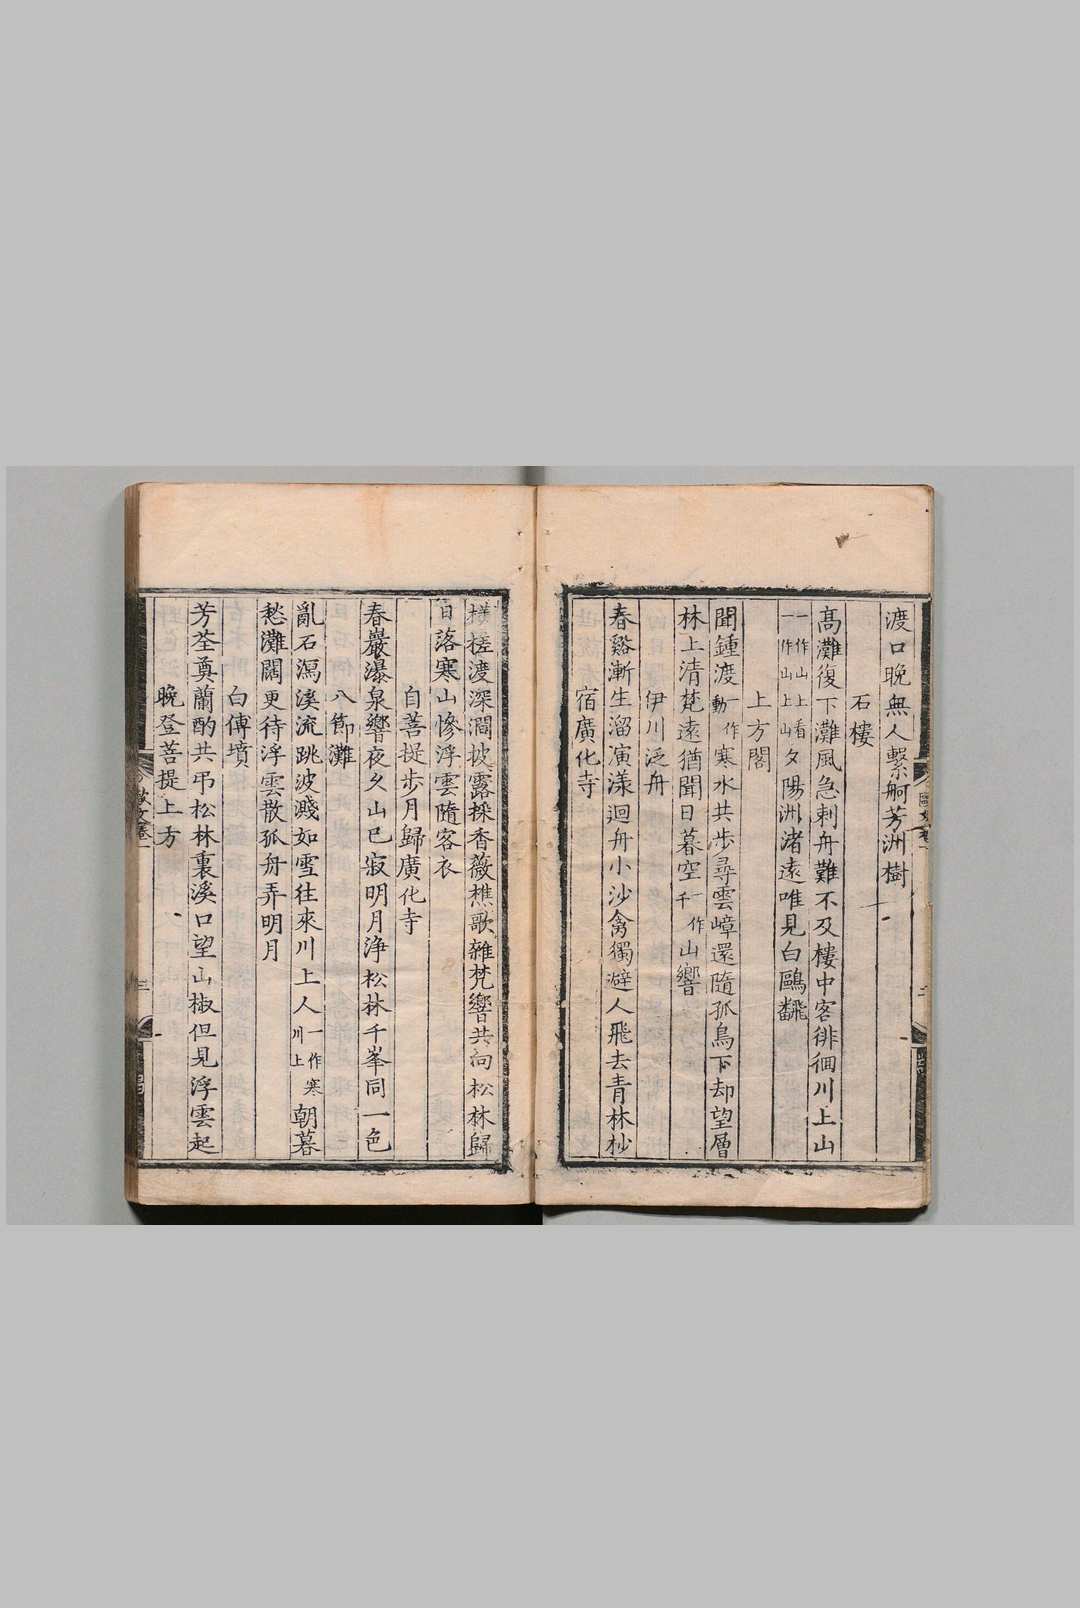 渡口晚無人繫舸芳洲樹
石樓
高灘復下灘風急刺舟難不及樓中客徘徊川上山
一作山上看
一作山上山
夕陽洲渚遠唯見白鷗翻
上方閣
聞鍾渡
一作
動
寒水共步尋雲嶂還隨孤鳥下却望層
林上清梵遠猶聞日暮空
一作
千
山響
伊川泛舟
春谿漸生溜演漾迴舟小沙禽獨避人飛去青林杪
宿廣化寺
橫槎渡深澗披露採香薇樵歌雜梵響共向松林歸
日落寒山慘浮雲隨客衣
自菩提步月歸廣化寺
春巖瀑泉響夜久山已寂明月淨松林千峯同一色
八節灘
亂石瀉溪流跳波濺如雪往來川上人
一作寒
川上
朝暮
愁灘闊更待浮雲散孤舟弄明月
白傅墳
芳荃奠蘭酌共弔松林裏溪口望山椒但見浮雲起
晚登菩提上方
歐文卷一
三